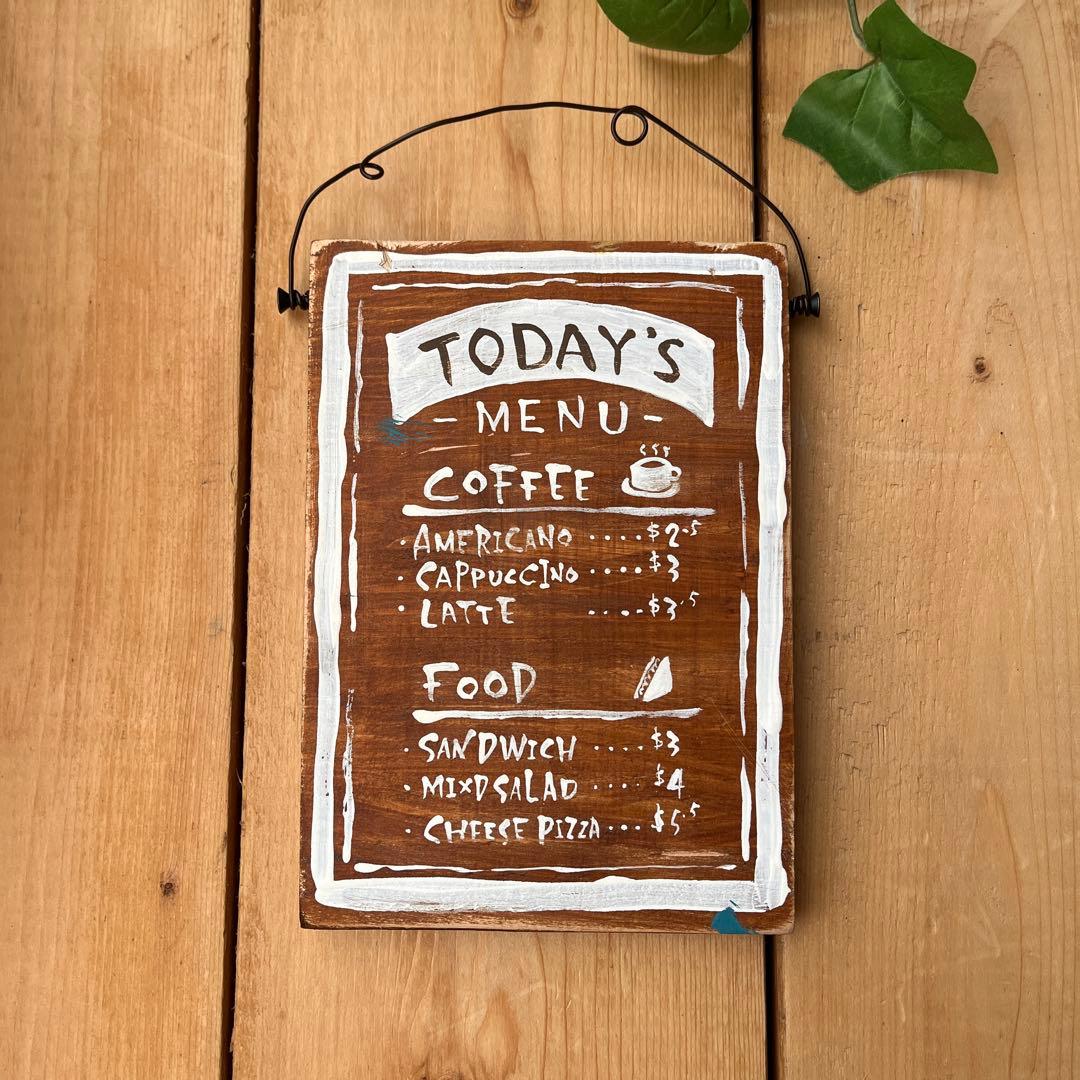 TODAY'S
- MENU -
COFFEE
· AMERICANO ···· $2.5
· CAPPUCCINO ···· $3
· LATTE ···· $3.5
FOOD
· SANDWICH ···· $3
· MIXD SALAD ···· $4
· CHEESE PIZZA ··· $5.5